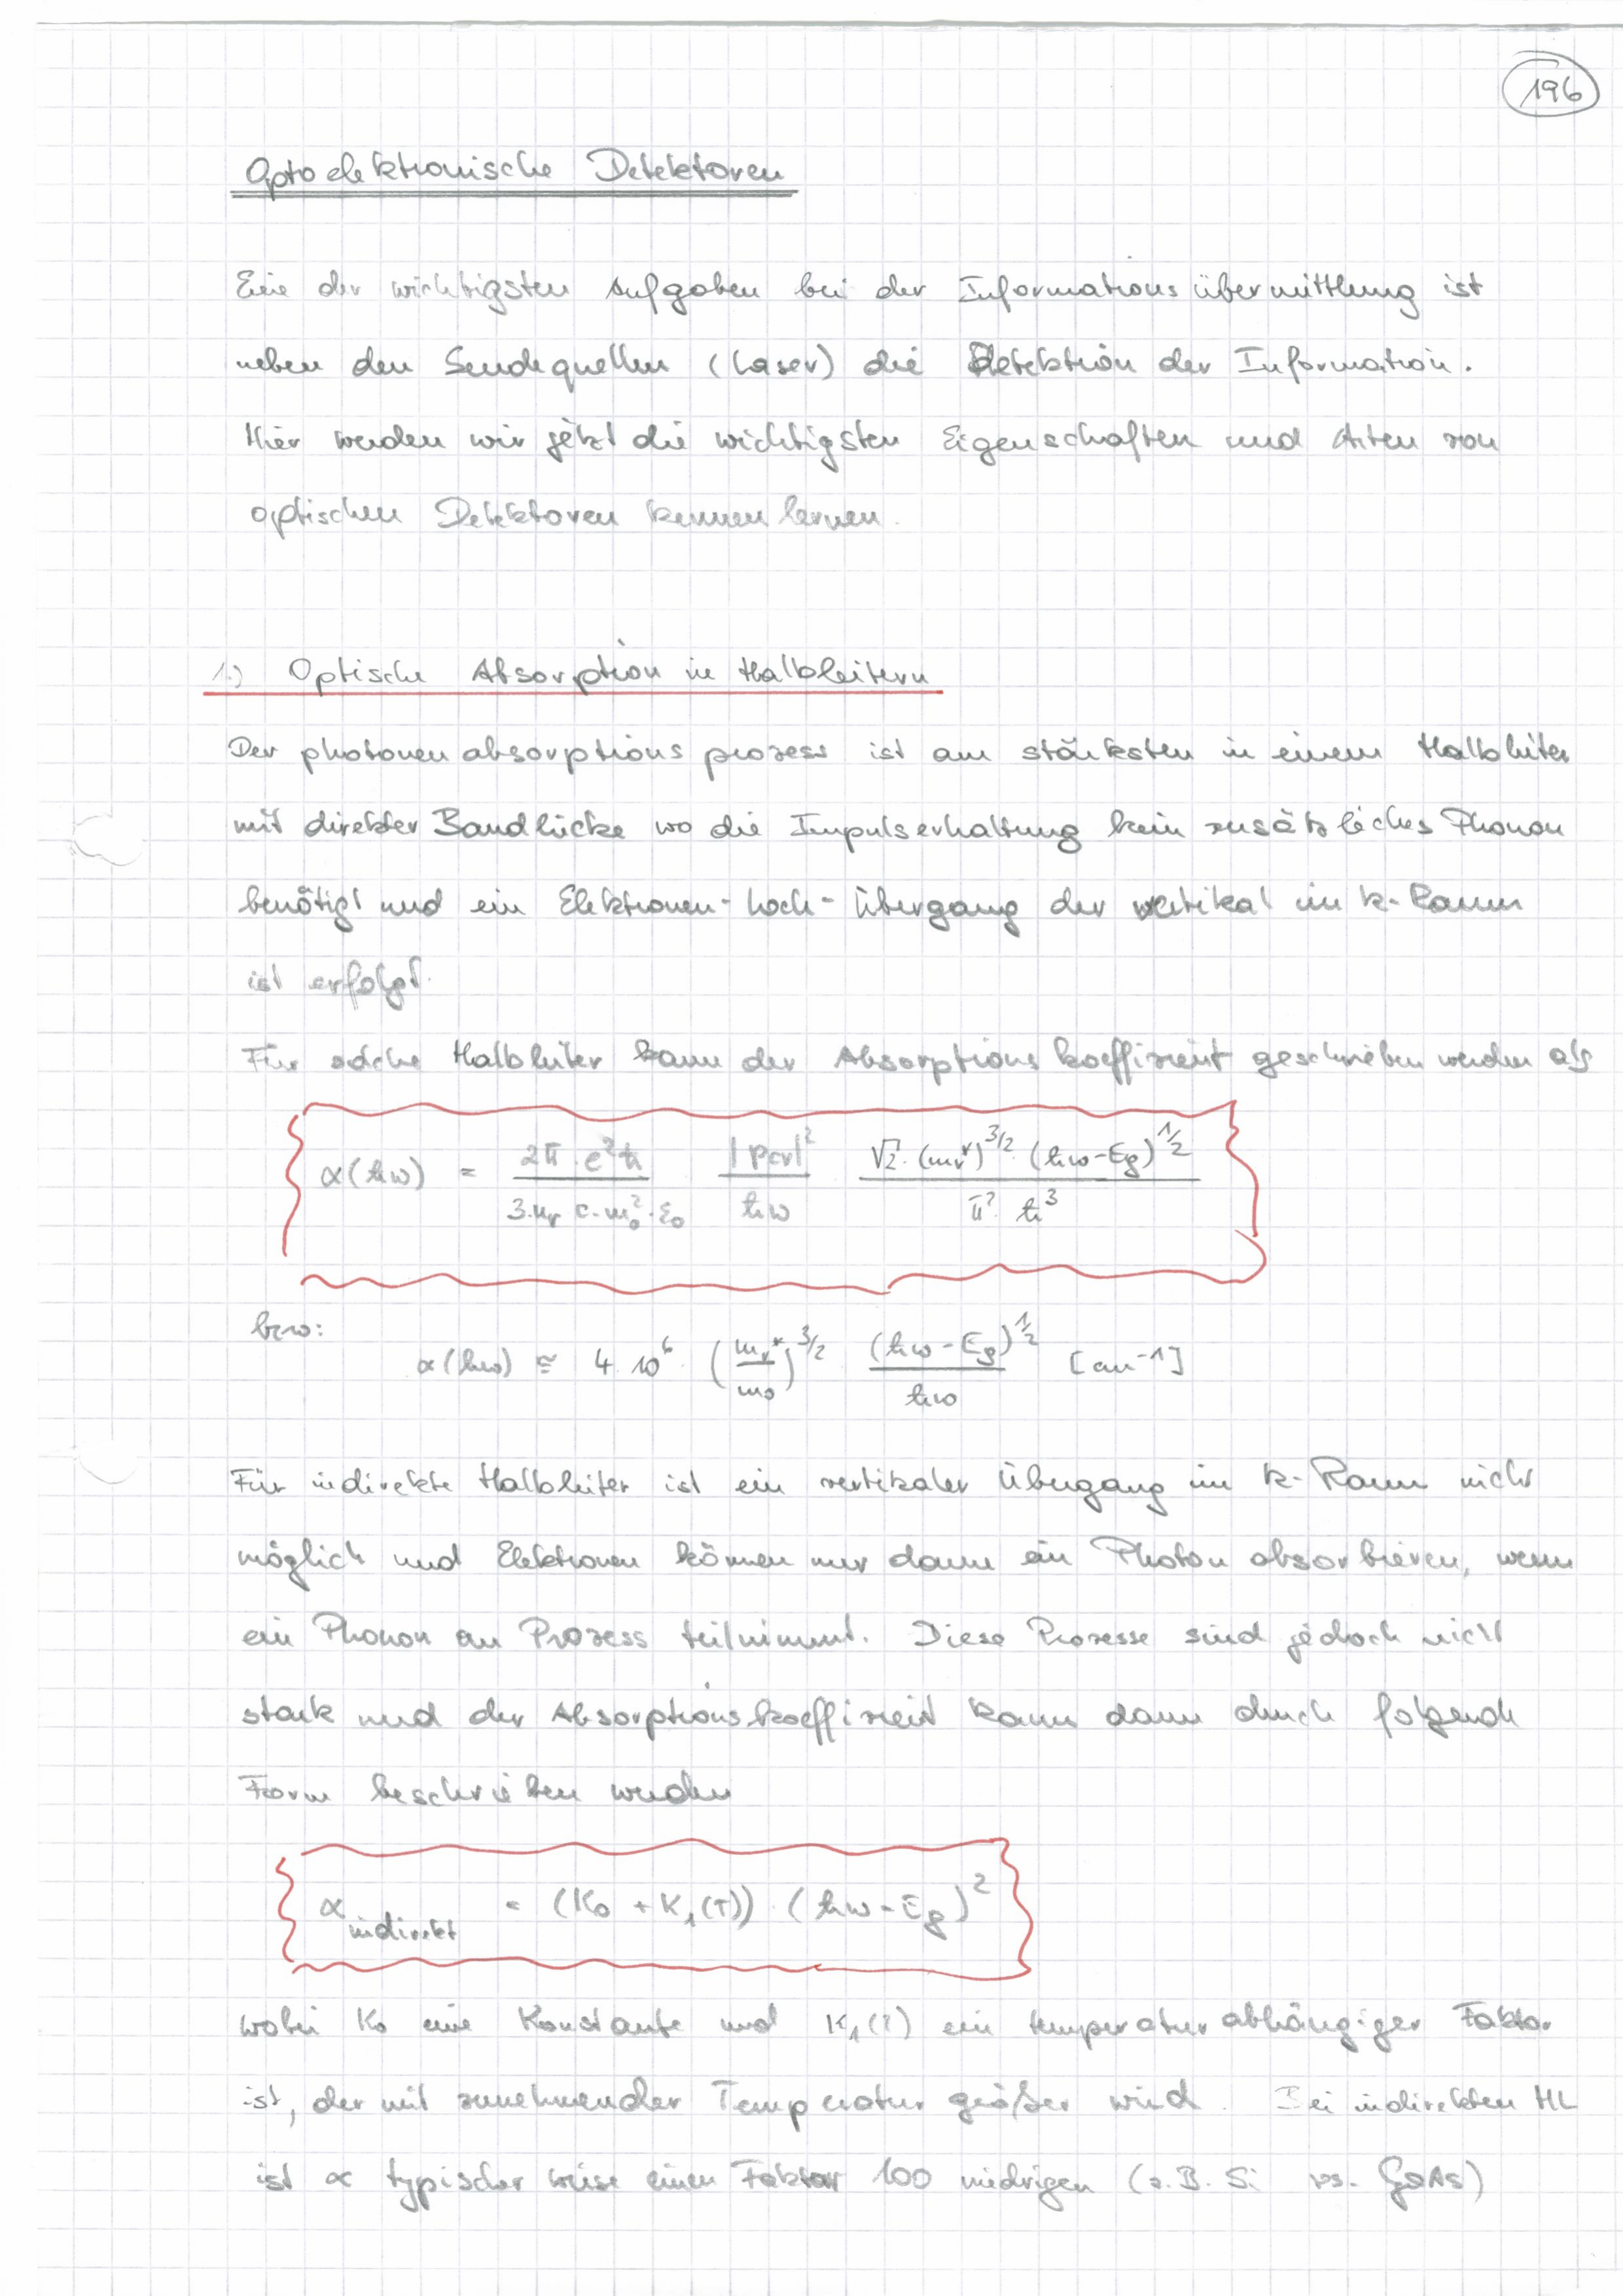 196
Optoelektronische Detektoren
Eine der wichtigsten Aufgaben bei der Informationsübermittlung ist
neben den Sendequellen (Laser) die Detektion der Information.
Hier werden wir jetzt die wichtigsten Eigenschaften und Arten von
optischen Detektoren kennen lernen.
1.) Optische Absorption in Halbleitern
Der photonenabsorptionsprozess ist am stärksten in einem Halbleiter
mit direkter Bandlücke wo die Impulserhaltung kein zusätzliches Phonon
benötigt und ein Elektronen-Loch-Übergang der vertikal im k-Raum
ist erfolgt.
Für solche Halbleiter kann der Absorptionskoeffizient geschrieben werden als
α(ħω) = (2π·e²ħ)/(3·n_r·c·m₀²·ε₀) |p_cv|²/(ħω) (√2·(m_r*)^3/2·(ħω-Eg)^1/2)/(π²·ħ³)
bzw:
α(ħω) ≅ 4·10⁶·(m_r*/m₀)^3/2 (ħω-Eg)^1/2/(ħω) [cm⁻¹]
Für indirekte Halbleiter ist ein vertikaler Übergang im k-Raum nicht
möglich und Elektronen können nur dann ein Photon absorbieren, wenn
ein Phonon am Prozess teilnimmt. Diese Prozesse sind jedoch nicht
stark und der Absorptionskoeffizient kann dann durch folgende
Form beschrieben werden
α_indirekt = (K₀ + K₁(T))·(ħω-Eg)²
wobei K₀ eine Konstante und K₁(T) ein temperaturabhängiger Faktor
ist, der mit zunehmender Temperatur größer wird. Bei indirekten HL
ist α typischer weise einen Faktor 100 niedriger (z.B. Si vs. GaAs)